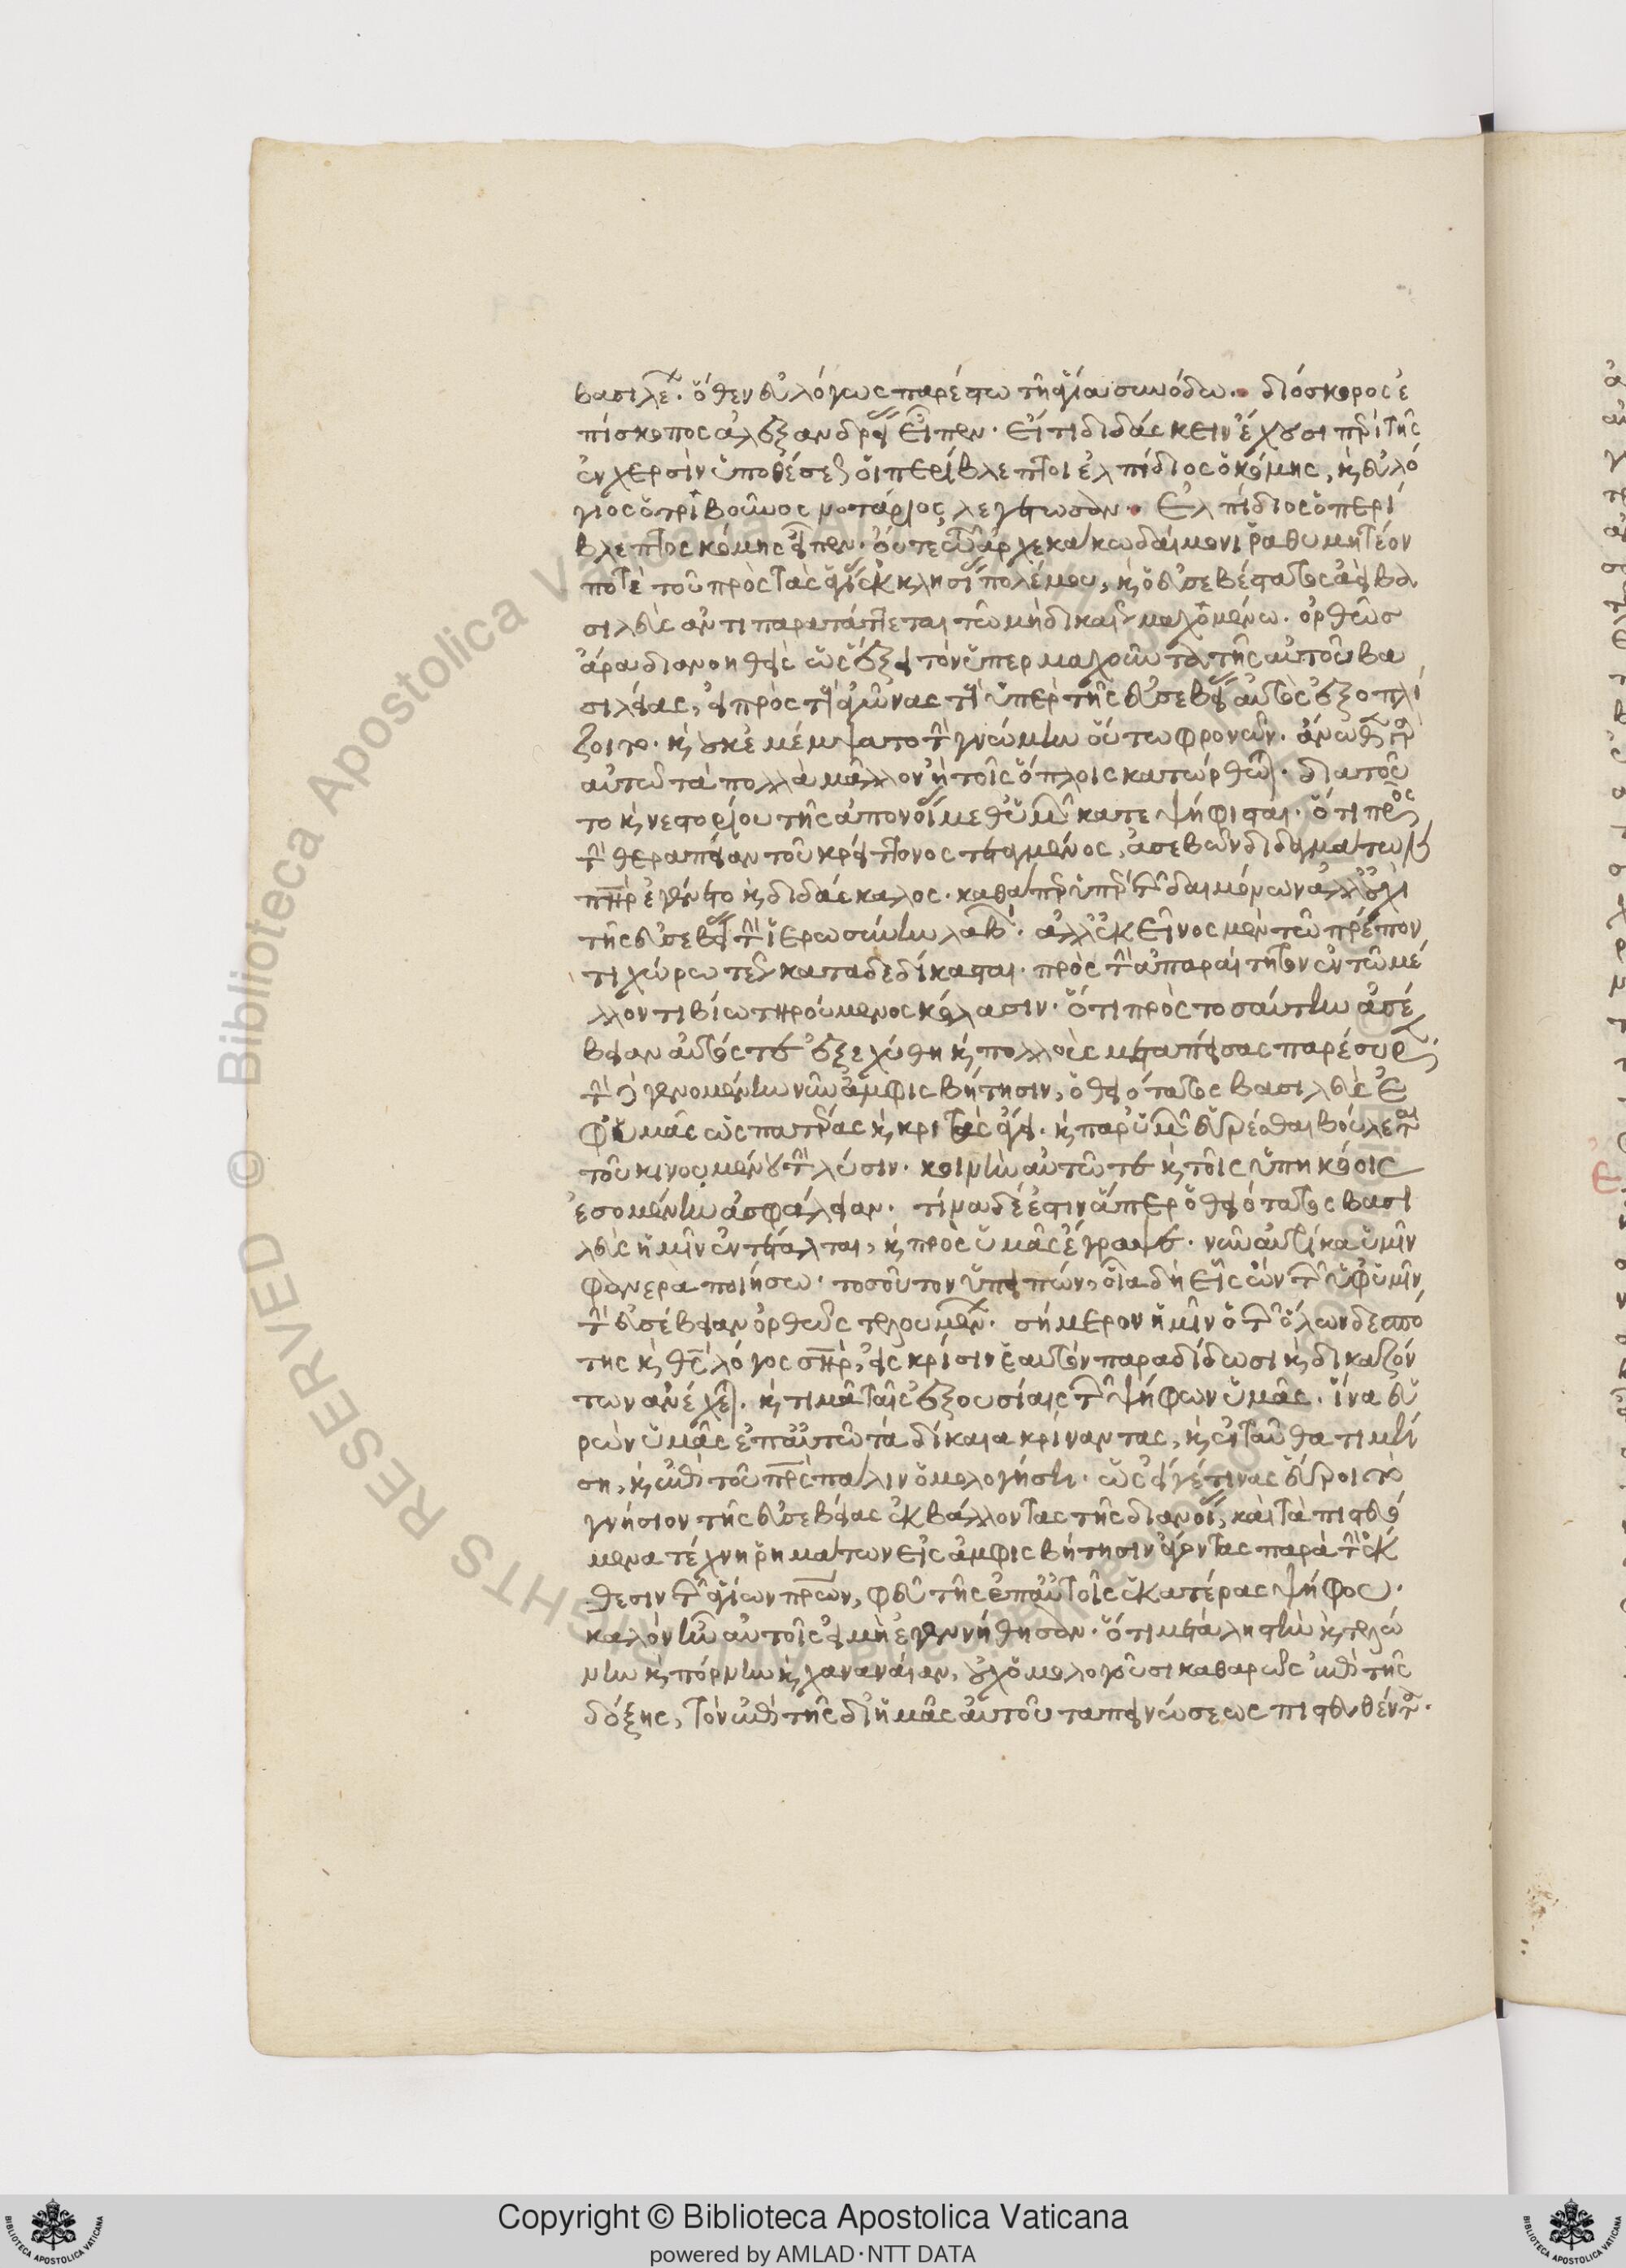 βασιλε. ὅθεν εὐλόγως παρέστω τῇ ἁγίᾳ συνόδω. διόσκορος ἐ
πίσκοπος ἀλεξανδρείας εἶπεν. εἴ τι διδάσκειν ἔχουσι περὶ τῆς
ἐν χερσὶν ὑποθέσεως οἱ περίβλεπτοι ἐλπίδιος ὁ κόμης, καὶ εὐλό
γιος ὁ τριβοῦνος νοτάριος λεγέτωσαν. Ἐλπίδιος ὁ περί
βλεπτος κόμης εἶπεν. οὔτε τῶ ἀρχεκάκω δαίμονι ῥαθυμητέον
ποτὲ τοῦ πρὸς τὰς ἁγίας ἐκκλησίας πολέμου, καὶ ὁ εὐσεβέστατος ἀεὶ βα
σιλεὺς ἀντιπαρατάττεται τῶ μὴ δικαίως μαχομένω. ὀρθῶς
ἄρα διανοηθεὶς ὡς ἕξει τὸν ὑπερμαχοῦντα τῆς αὐτοῦ βα
σιλείας, εἰ πρὸς τοὺς ἀγῶνας τοὺς ὑπὲρ τῆς εὐσεβείας αὐτὸς ἐξοπλί
ζοιτο. καὶ οὐκ ἐμέμψατο τὴν γνώμην οὕτω φρονῶν. ἄνωθεν
αὐτῶ τὰ πολλὰ μᾶλλον ἢ τοῖς ὅπλοις κατώρθωται. διὰ τοῦ
το καὶ νεστορίου τῆς ἀπονοίας μεθ' ὑμῶν κατεψήφισται. ὅτι πρὸς
τὴν θεραπείαν τοῦ κρείττονος τεταγμένος, ἀσεβῶν διδαγμάτων
πατὴρ ἐγένετο καὶ διδάσκαλος. καθάπερ ὑπὲρ τῶν δαιμόνων ἀλλ' οὐχὶ
τῆς εὐσεβείας τὴν ἱερωσύνην λαβών. ἀλλ' ἐκεῖνος μὲν τῶ πρέπον
τι χώρω τέως καταδεδίκασται. πρὸς τὴν ἀπαραίτητον ἐν τῶ μέ
λλοντι βίω τηρούμενος κόλασιν. ὅτι πρὸς τοσαύτην ἀσέ
βειαν αὐτός τε ἐξεχύθη καὶ πολλοὺς μεταπείσας παρέσυρε.
τὴν δὲ γενομένην νῦν ἀμφισβήτησιν, ὁ θειότατος βασιλεὺς ἐ
φ' ὑμᾶς ὡς πατέρας καὶ κριτὰς ἄγει. καὶ παρ' ὑμῶν εὑρέσθαι βούλεται
τοῦ κινουμένου τὴν λύσιν. κοινὴν αὐτῶ τε καὶ τοῖς ὑπηκόοις
ἐσομένην ἀσφάλειαν. τίνα δέ ἐστιν ἅπερ ὁ θειότατος βασι
λεὺς ἡμῖν ἐντέταλται, καὶ πρὸς ὑμᾶς ἔγραψε. νῦν αὐτίκα ὑμῖν
φανερὰ ποιήσω. τοσοῦτον ὑπειπὼν, οἷα δὴ εἷς ὢν τῶν ὑφ' ὑμῖν
τὴν εὐσέβειαν ὀρθῶς τελουμένων. σήμερον ἡμῖν ὁ τῶν ὅλων δεσπό
της καὶ θεὸς λόγος σωτὴρ, εἰς κρίσιν ἑαυτὸν παραδίδωσι καὶ δικαζόν
των ἀνέχεται. καὶ τιμᾶ ταῖς ἐξουσίαις τῶν ψήφων ὑμᾶς. ἵνα εὑ
ρὼν ὑμᾶς ἐπ' αὐτῶ τὰ δίκαια κρίναντας, καὶ ἐνταῦθα τιμή
ση, καὶ ἐπὶ τοῦ πατρὸς πάλιν ὁμολογήση. ὡς εἴ γέ τινας εὕροι τὸ
γνήσιον τῆς εὐσεβείας ἐκβάλλοντας τῆς διανοίας, καὶ τὰ πιστευό
μενα τέχνη ῥημάτων εἰς ἀμφισβήτησιν ἄγοντας παρὰ τὴν ἔκ
θεσιν τῶν ἁγίων πατέρων, φεῦ τῆς ἐπ' αὐτοῖς ἑκατέρας ψήφου.
καλὸν ἦν αὐτοῖς εἰ μὴ ἐγεννήθησαν. ὅτι μετὰ ληστὴν καὶ τελώ
νην καὶ πόρνην καὶ χαναναίαν, οὐχ ὁμολογοῦσι καθαρῶς ἐπὶ τῆς
δόξης, τὸν ἐπὶ τῆς δι' ἡμᾶς αὐτοῦ ταπεινώσεως πιστευθέντα.